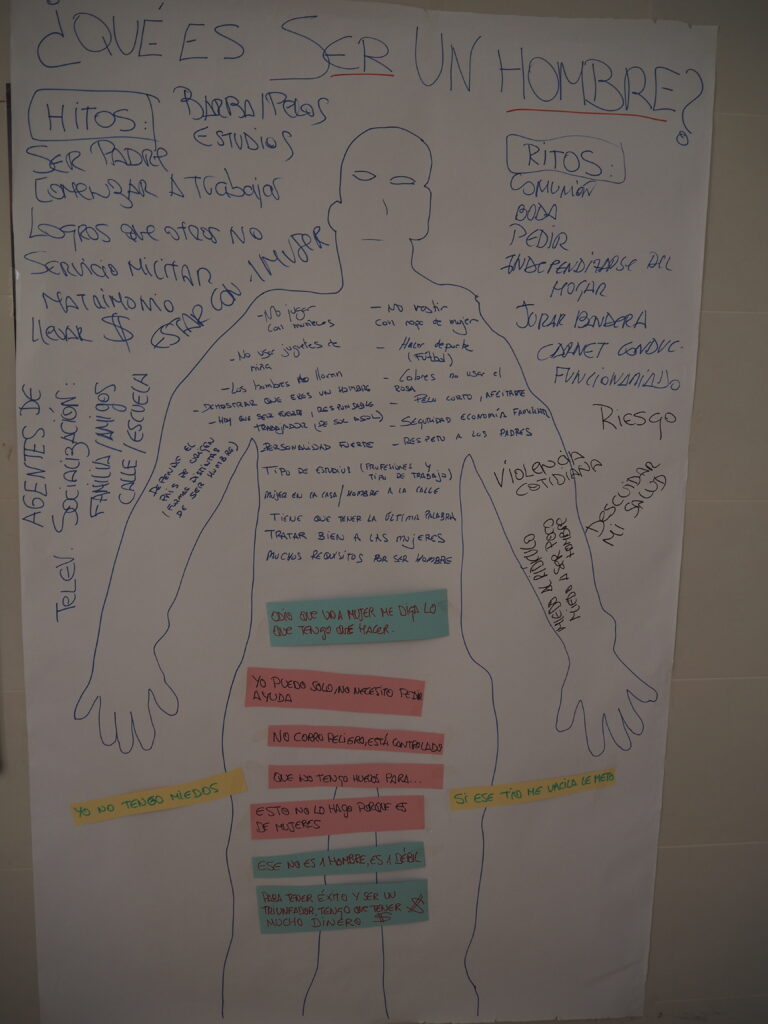 ¿QUÉ ES SER UN HOMBRE?
HITOS:
BARBA/PELOS
ESTUDIOS
SER PADRE
COMENZAR A TRABAJAR
LOGROS QUE OTROS NO
SERVICIO MILITAR
MATRIMONIO
LLEVAR $
ESTAR CON 1 MUJER
RITOS:
COMUNIÓN
BODA
PEDIR
INDEPENDIZARSE DEL
HOGAR
JURAR BANDERA
CARNET CONDUC.
FUNCIONARIADO
RIESGO
AGENTES DE
SOCIALIZACIÓN:
FAMILIA/AMIGOS
CALLE/ESCUELA
TELEV.
- NO JUGAR
CON MUÑECAS
- NO USAR JUGUETES DE
NIÑA
- LOS HOMBRES NO LLORAN
- DEMOSTRAR QUE ERES UN HOMBRE
- HAY QUE SER FUERTE, RESPONSABLE
TRABAJADOR (DE SOL A SOL)
PERSONALIDAD FUERTE
- NO VESTIR
CON ROPA DE MUJER
- HACER DEPORTE
(FÚTBOL)
- COLORES NO USAR EL
ROSA
- PELO CORTO, AFEITARTE
- SEGURIDAD ECONOMÍA FAMILIAR
- RESPETO A LOS PADRES
TIPO DE ESTUDIOS (PROFESIONES Y
TIPO DE TRABAJO)
MUJER EN LA CASA/HOMBRE A LA CALLE
TIENE QUE TENER LA ÚLTIMA PALABRA
TRATAR BIEN A LAS MUJERES
MUCHOS REQUISITOS POR SER HOMBRE
DEPENDE EL
PAÍS DE ORIGEN
(FORMAS DISTINTAS
DE SER HOMBRE)
VIOLENCIA
COTIDIANA
DESCUIDAR
MI SALUD
MIEDO AL RIDÍCULO
MIEDO A SER POCO
HOMBRE
ODIO QUE UNA MUJER ME DIGA LO
QUE TENGO QUE HACER.
YO PUEDO SOLO, NO NECESITO PEDIR
AYUDA
NO CORRO PELIGRO, ESTÁ CONTROLADO
QUE NO TENGO HUEVOS PARA...
YO NO TENGO MIEDOS
SI ESE TÍO ME VACILA LE METO
ESTO NO LO HAGO PORQUE ES
DE MUJERES
ESE NO ES 1 HOMBRE, ES 1 DÉBIL
PARA TENER ÉXITO Y SER UN
TRIUNFADOR, TENGO QUE TENER
MUCHO DINERO $ $